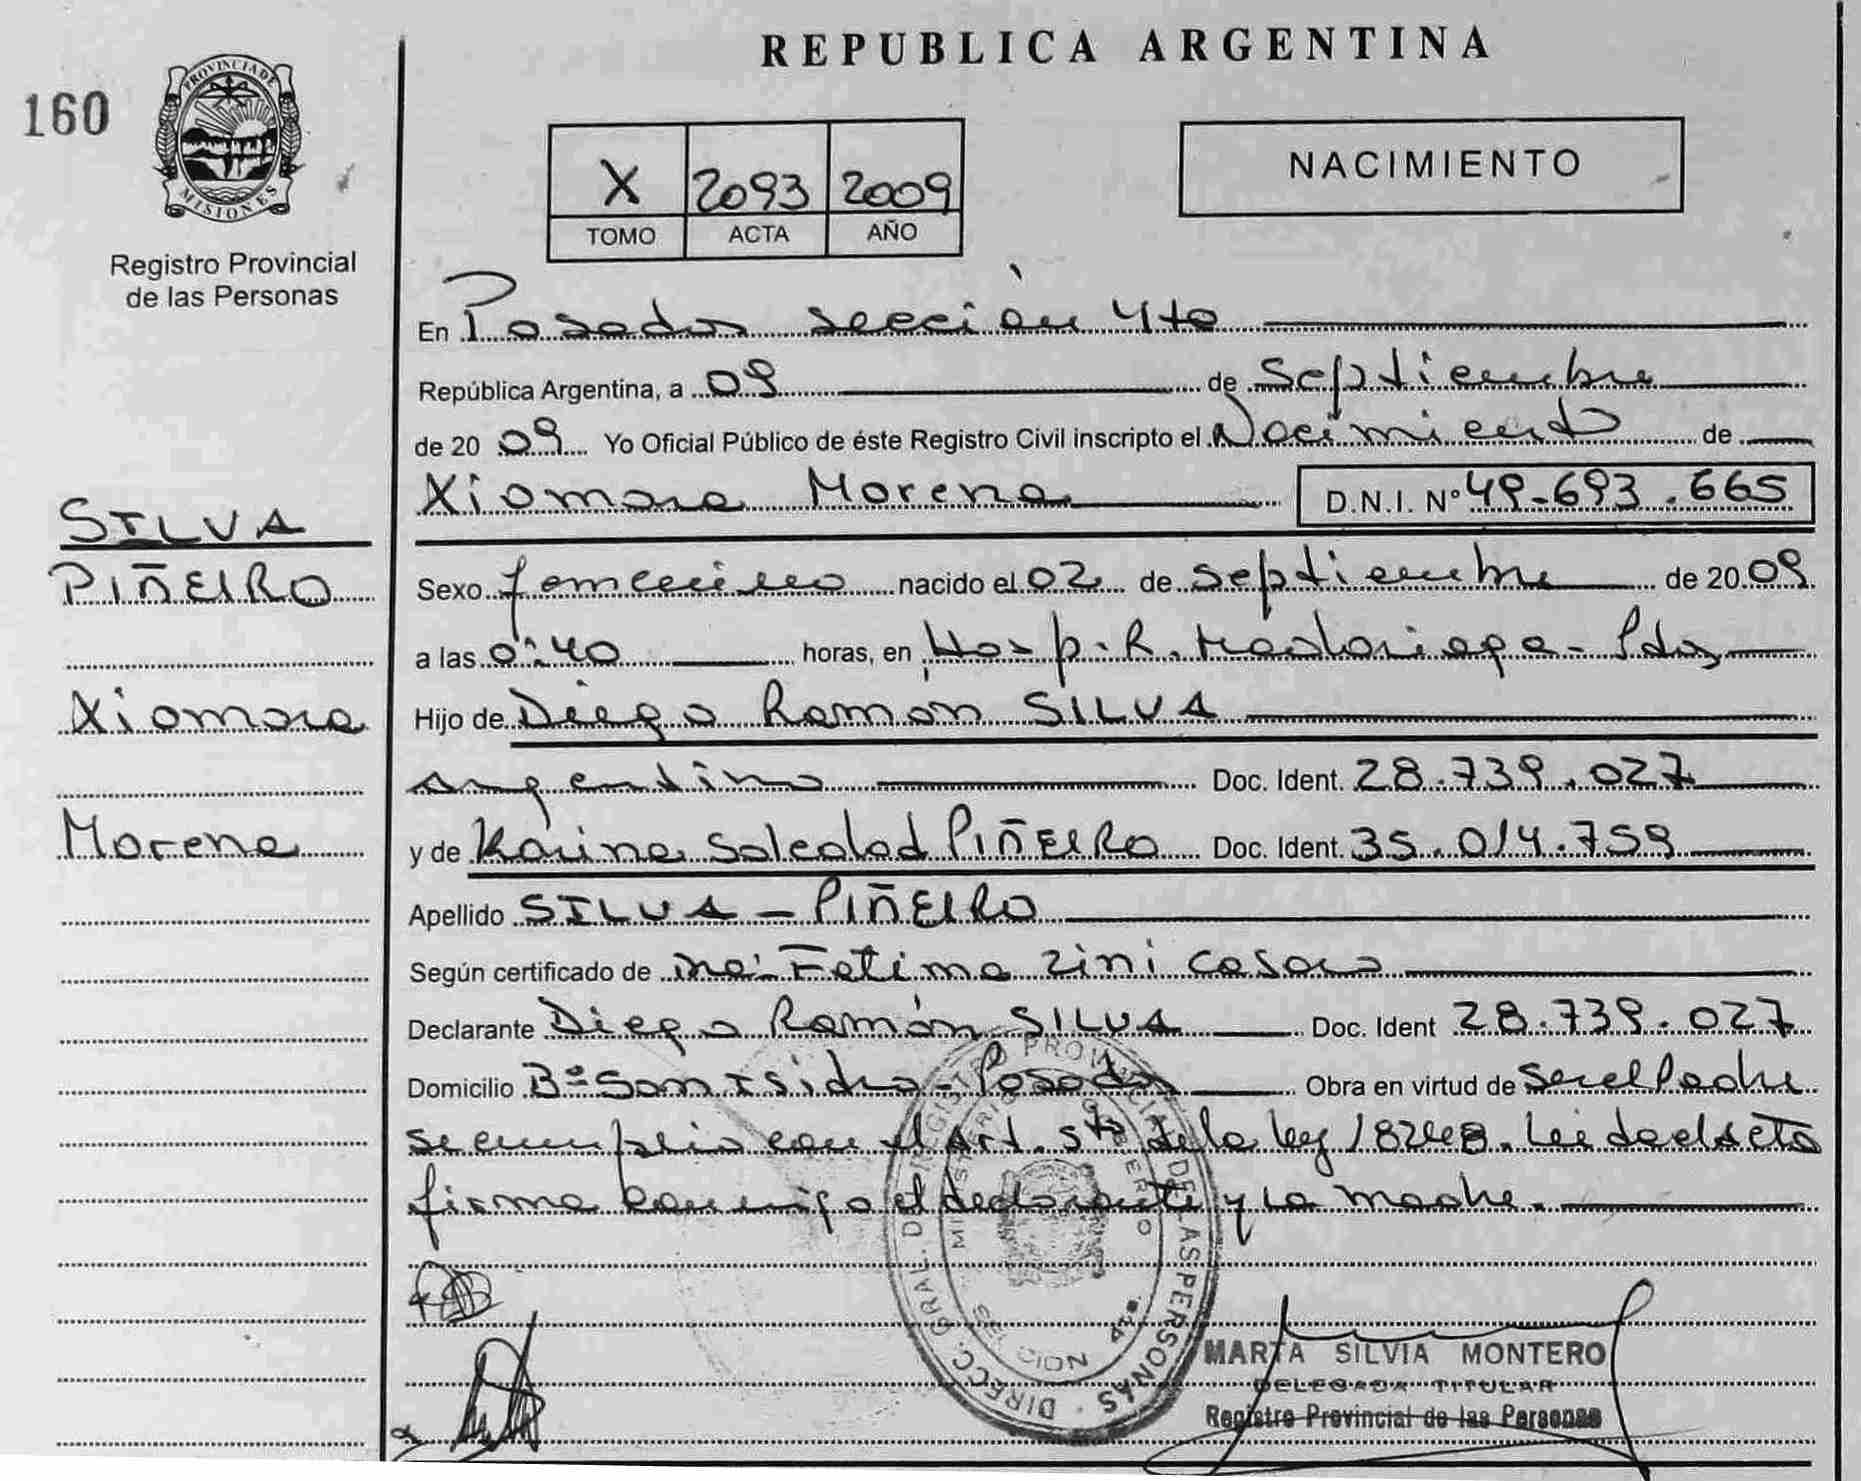 REPUBLICA ARGENTINA
160
PROVINCIA DE
MISIONES
Registro Provincial
de las Personas
X 2093 2009
TOMO ACTA AÑO
NACIMIENTO
En Posadas sección 4ta
República Argentina, a 09 de Septiembre
de 20 09 Yo Oficial Público de éste Registro Civil inscripto el Nacimiento de
Xiomara Morena D.N.I. Nº 49.693.665
SILVA
PIÑEIRO
Xiomara
Morena
Sexo femenino nacido el 02 de septiembre de 20 09
a las 0:40 horas, en Hosp. R. Madariaga - Pdas
Hijo de Diego Ramón SILVA
argentino Doc. Ident. 28.739.027
y de Karina Soledad PIÑEIRO Doc. Ident. 35.014.759
Apellido SILVA - PIÑEIRO
Según certificado de Fatima Zini
Declarante Diego Ramón SILVA Doc. Ident 28.739.027
Domicilio Bº San Isidro - Posadas Obra en virtud de ser el Padre
se cumplio con el Art. 5to de la ley 18248. Leida el acta
firma conmigo el declarante y la madre.
DIRECC. GRAL. DE REGISTRO PROVINCIAL DE LAS PERSONAS
MINISTERIO DE GOBIERNO
MARTA SILVIA MONTERO
DELEGADA TITULAR
Registro Provincial de las Personas